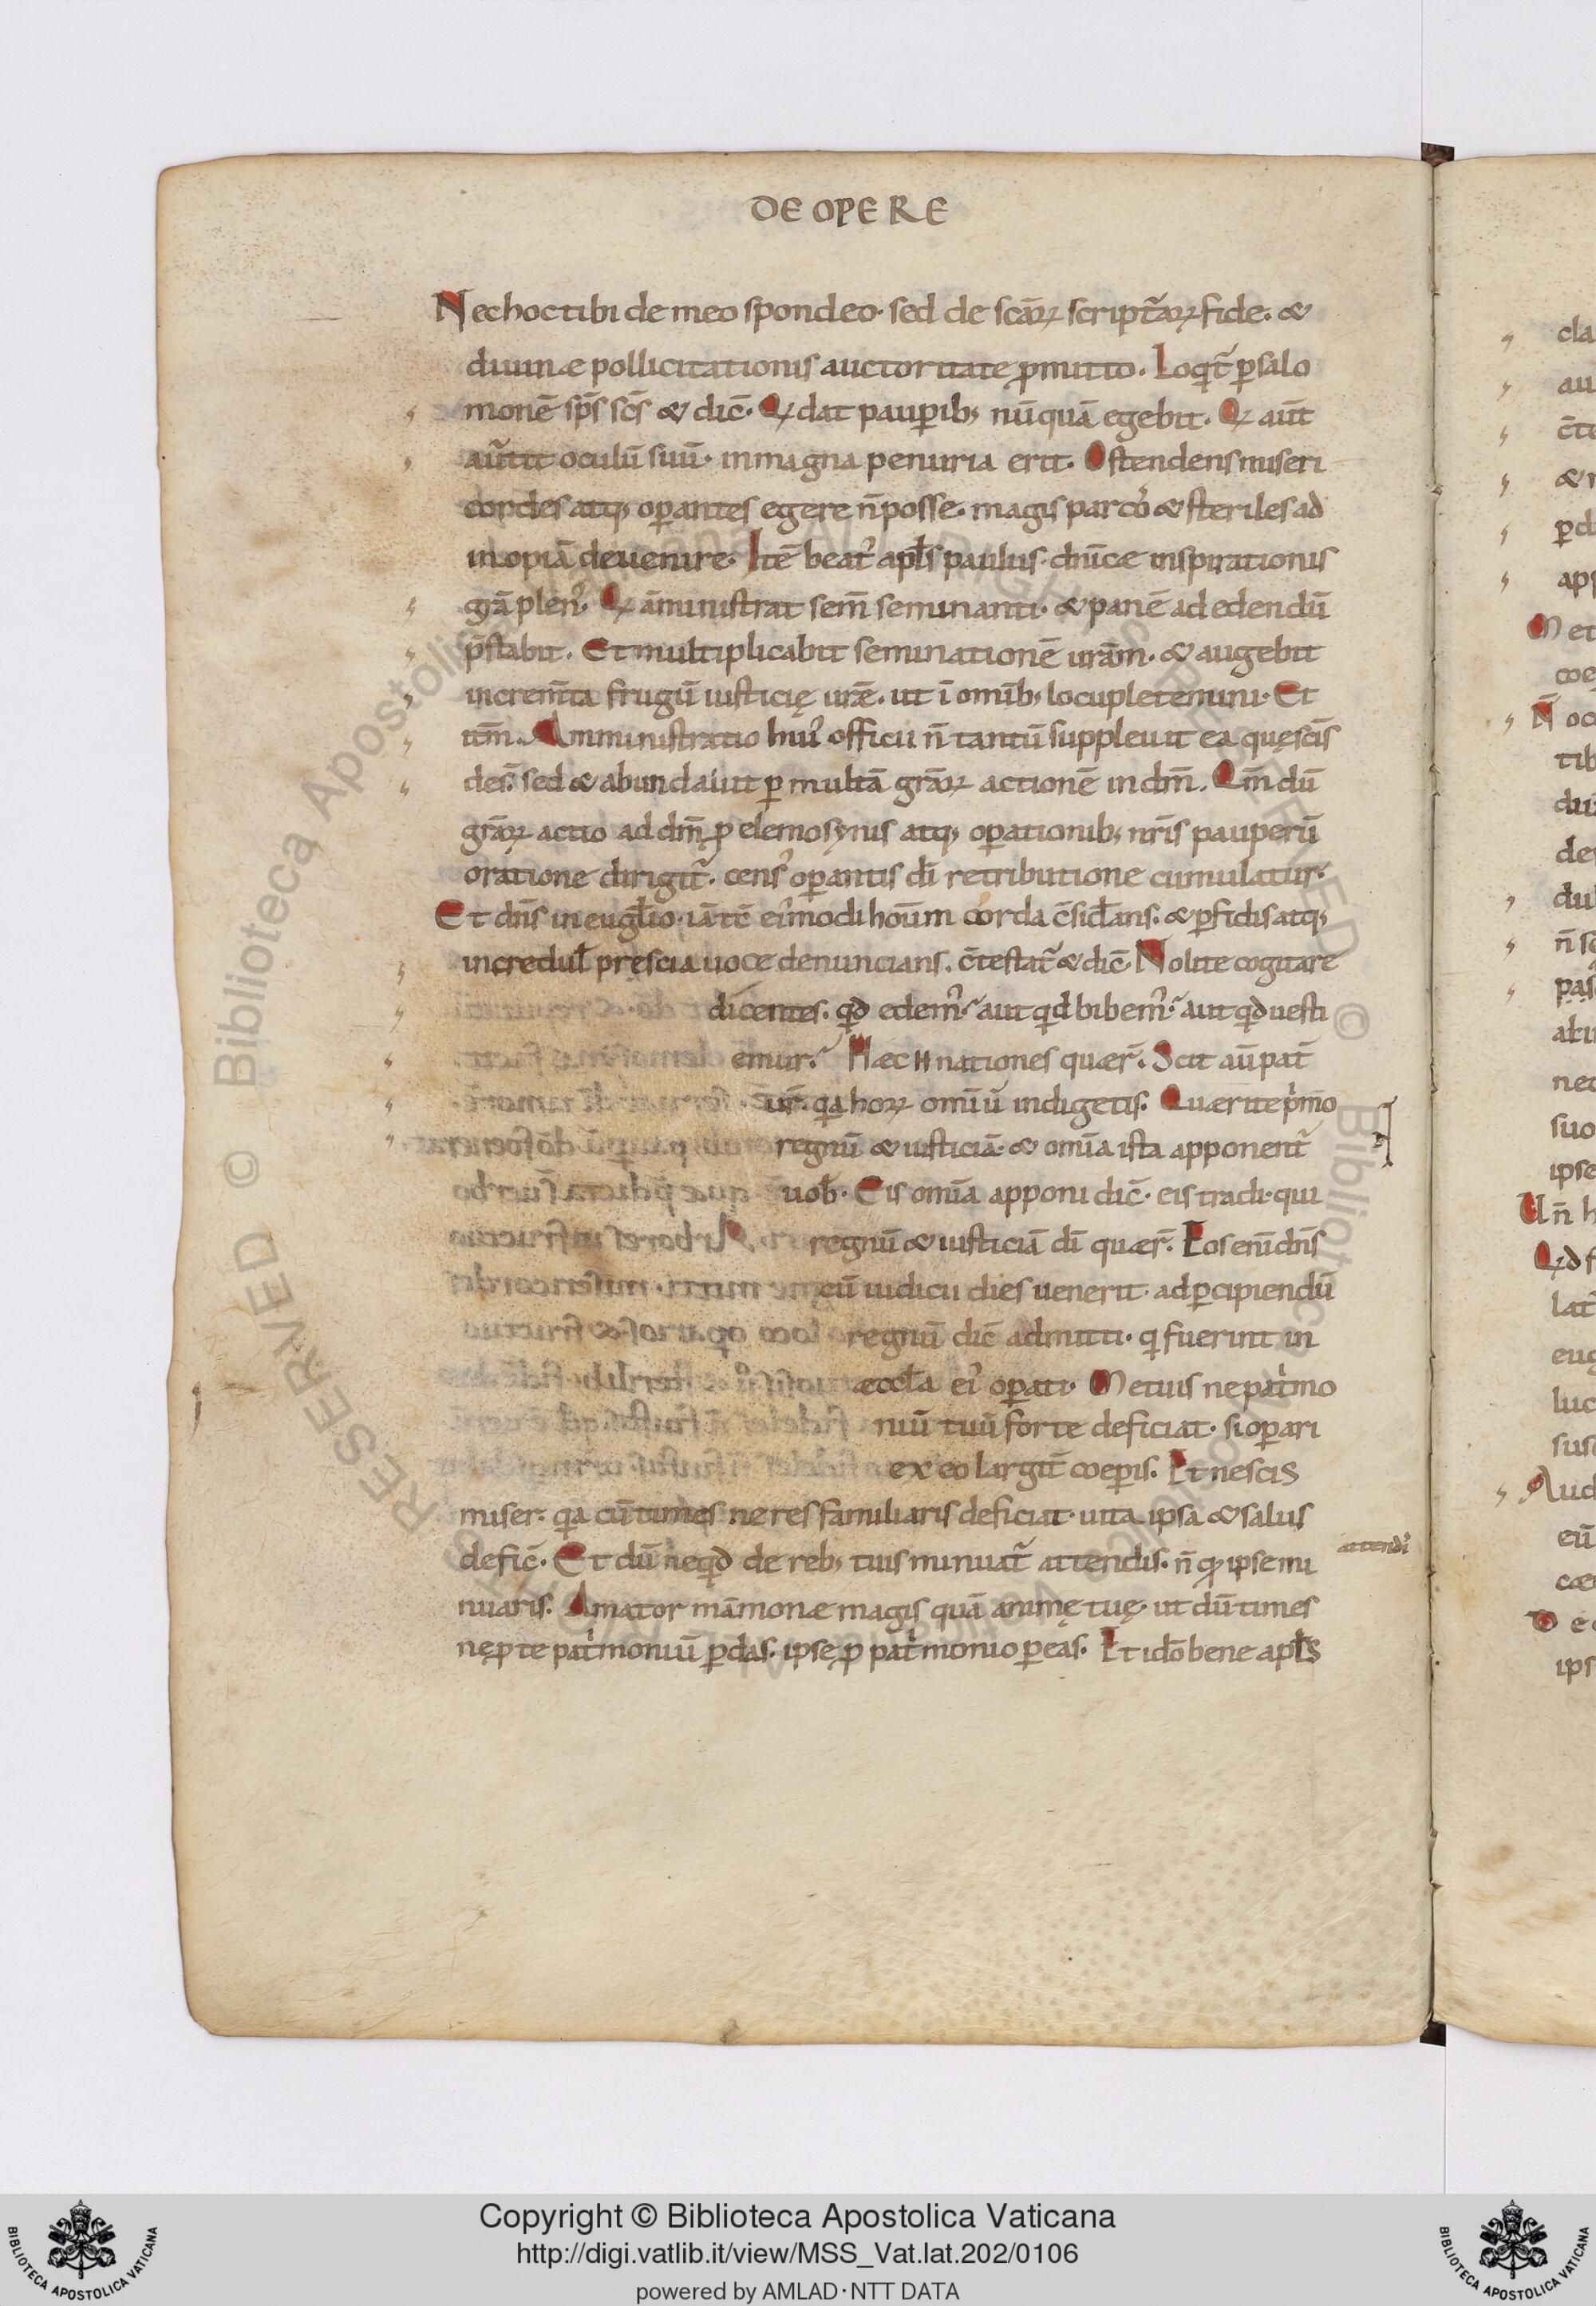 DE OPERE
Nec hoc tibi de meo spondeo· sed de scāꝝ script̃aꝝ fide· &
diuinæ pollicitationis auctoritate ꝓmitto. Loqt̃ ꝑ salo
monē sp̄s sc̄s & dic̄· Q dat pauꝑib; nūquā egebit. Q aūt
aũtit oculū suū· in magna penuria erit. Ostendens miseri
cordes atq; oꝑantes egere n̄ posse· magis parco᷒ & steriles ad
inopiā deuenire· Itē beat᷒ apłs paulus· dn̄icæ inspirationis
grā plen᷒. Q āministrat sem̄ seminanti· & panē ad edendū
p̄stabit. Et multiplicabit seminationē urām· & augebit
increm̄ta frugū iusticię urǣ· ut ī omīb; locupletemini· Et
itm̄. Amministratio hui᷒ officii n̄ tantū suppleuit ea quę sc̄is
des̄t· sed & abundauit ꝑ multā grāꝝ actionē in dm̄. Qm̄ dū
grāꝝ actio ad dm̄ ꝓ elemosynis atq; oꝑationib; nr̄is pauperū
oratione dirigit̃· cens᷒ oꝑantis dī retributione cumulatur·
Et dn̄s in eugłio· iā tc̄ ei᷒modi hoūm corda c̄sidans· & ꝑfidis atq;
inceduł pręscia uoce denuncians. c̄testat̃ & dic̄· Nolite cogitare
dicentes. qd edem᷒· aut qd bibem᷒· aut qd uesti
emur· Hæc n̄ nationes quær̄. Scit aū pat̄
ur̄· qa hoꝝ omiū indigetis. Quærite p̄mo
regnū & iusticiā· & omīa ista apponent̃
uob̄· Eis omīa apponi dic̄· eis tradi· qui
regnū & iusticiā dī quær̄. Eos enī dn̄s
cū iudicii dies uenerit· ad ꝑcipiendū
regnū dic̄ admitti· q fuerint in
æccła ei᷒ oꝑati· Metuis ne pat̓mo
niū tuū forte deficiat· si oꝑari
ex eo largit̄ coeꝑis. Et nescis
miser· qa cū times ne res familiaris deficiat· uita ipsa & salus
defic̄· Et dū neqd de reb; tuis minuat̃ attendis· n̄ q ipse mi
attendi᷒
nuaris. Amator māmonæ magis quā animę tuę· ut dū times
ne ꝓ te pat̓moniū ꝑdas· ipse ꝓ pat̓monio ꝑeas. Et idō bene apłs
Copyright © Biblioteca Apostolica Vaticana
http://digi.vatlib.it/view/MSS_Vat.lat.202/0106
powered by AMLAD·NTT DATA